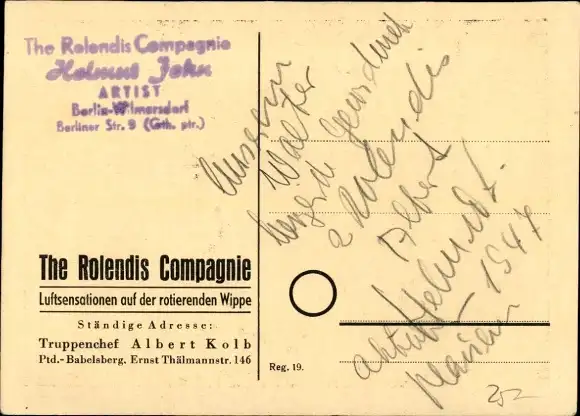 The Rolendis Compagnie
Helmut John
ARTIST
Berlin-Wilmersdorf
Berliner Str. 9 (Gth. ptr.)
The Rolendis Compagnie
Luftsensationen auf der rotierenden Wippe
Ständige Adresse:
Truppenchef Albert Kolb
Ptd.-Babelsberg. Ernst Thälmannstr. 146
Reg. 19.
Unserm
Walter
gewidmet
2 Rolendis
Albert
Helmut
1947
202